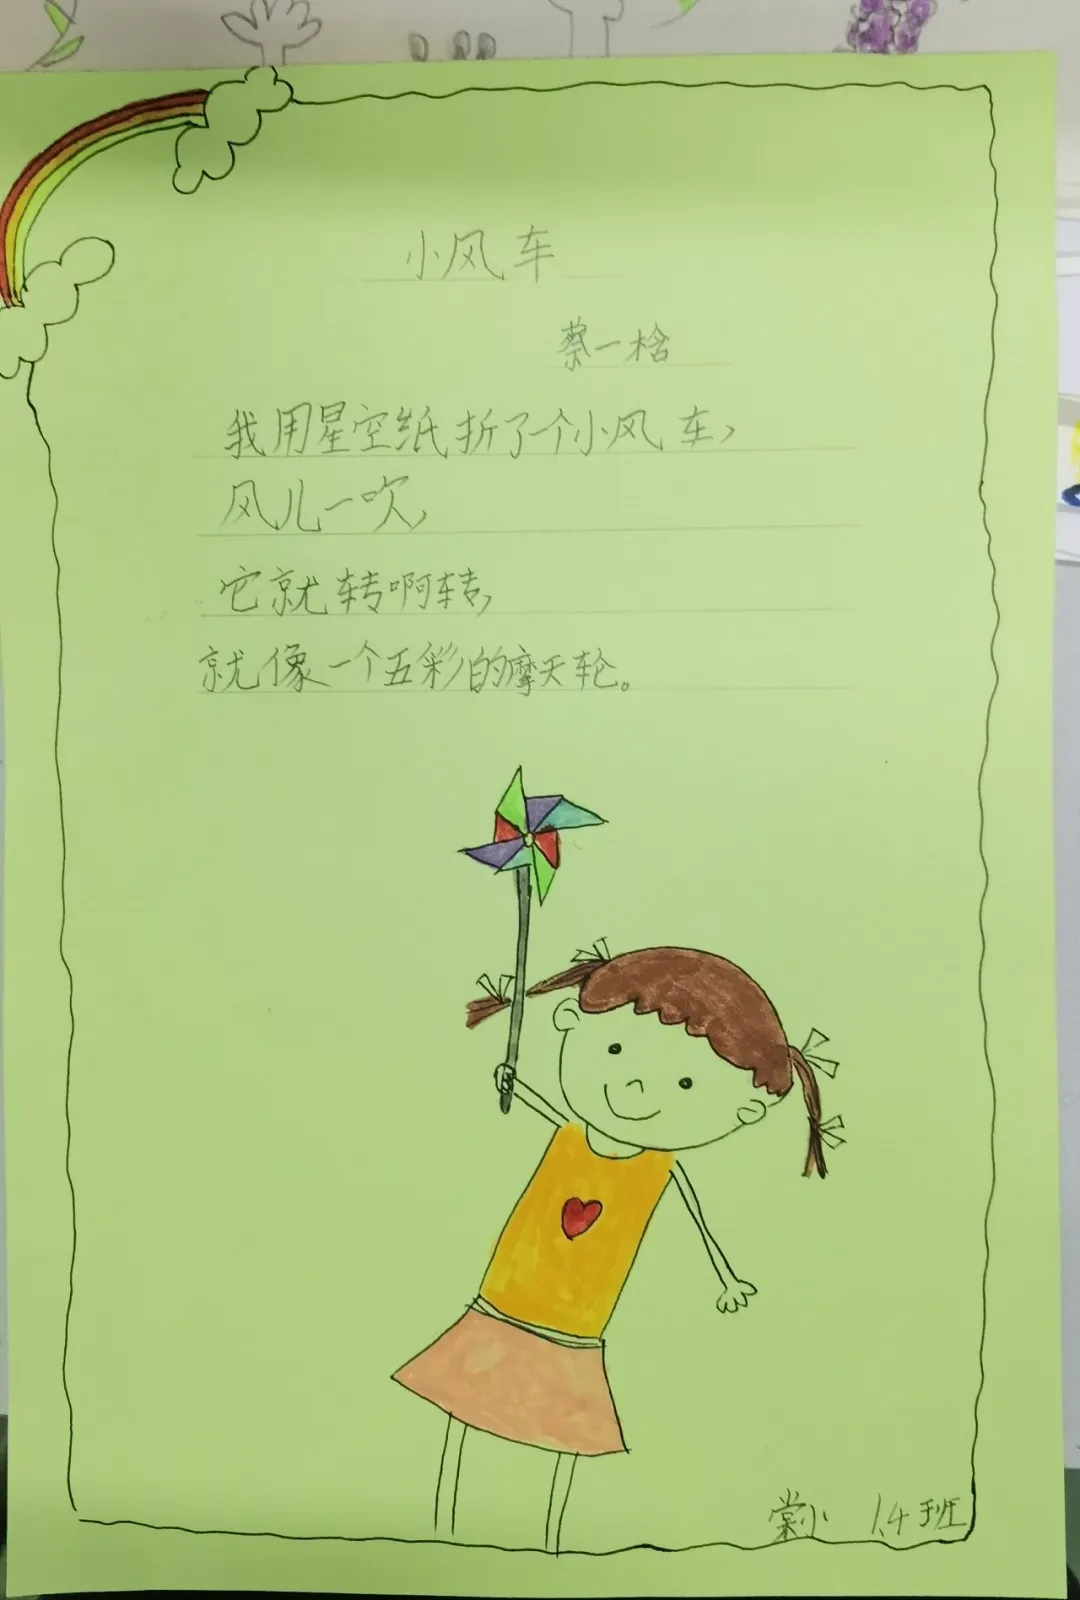 小风车
蔡一晗
我用星空纸折了一个小风车，
风儿一吹，
它就转啊转，
就像一个五彩的摩天轮。
棠小 1.4班